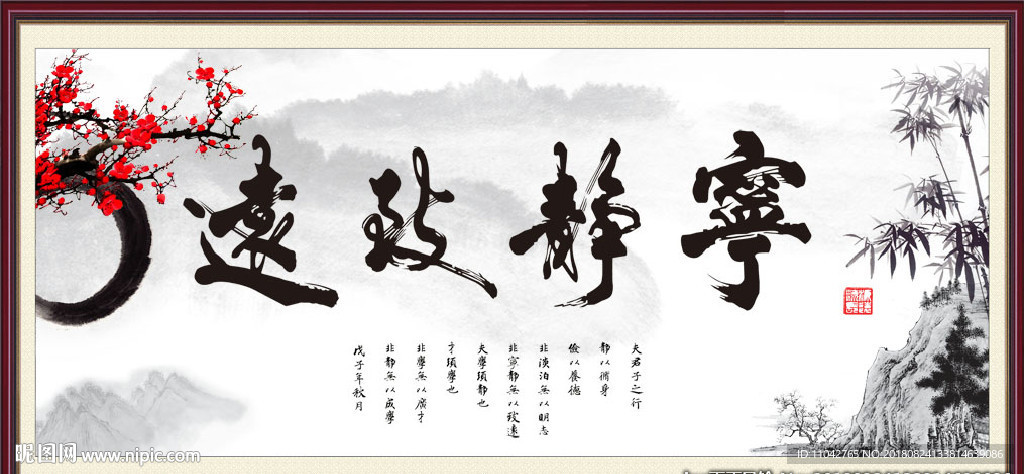 寧靜致遠
夫君子之行
靜以脩身
儉以養德
非淡泊無以明志
非寧靜無以致遠
夫學須靜也
才須學也
非學無以廣才
非靜無以成學
戊子年秋月
昵图网 www.nipic.com
ID:11042765 NO:20180824133814639086